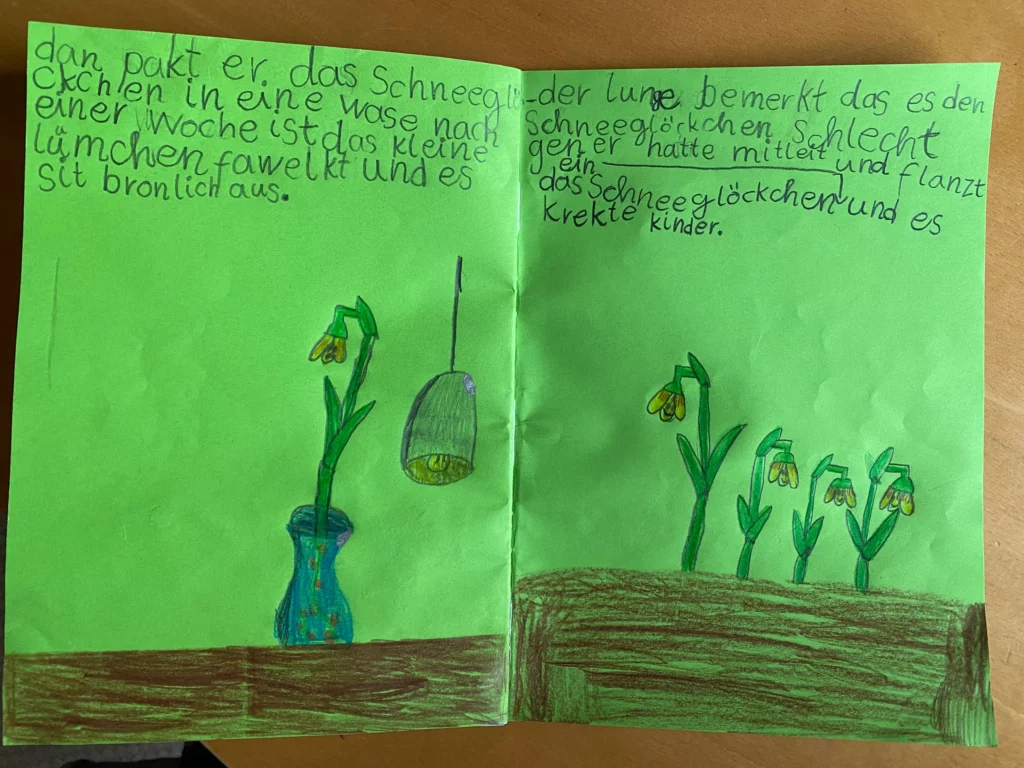 dan pakt er das Schneeglö
ckchen in eine wase nach
einer woche ist das kleine
lümchen fawelkt und es
sit bronlich aus.
-der lunge bemerkt das es den
Schneeglöckchen Schlecht
gen er hatte mitleit und flanzt
ein
das Schneeglöckchen und es
krekte kinder.